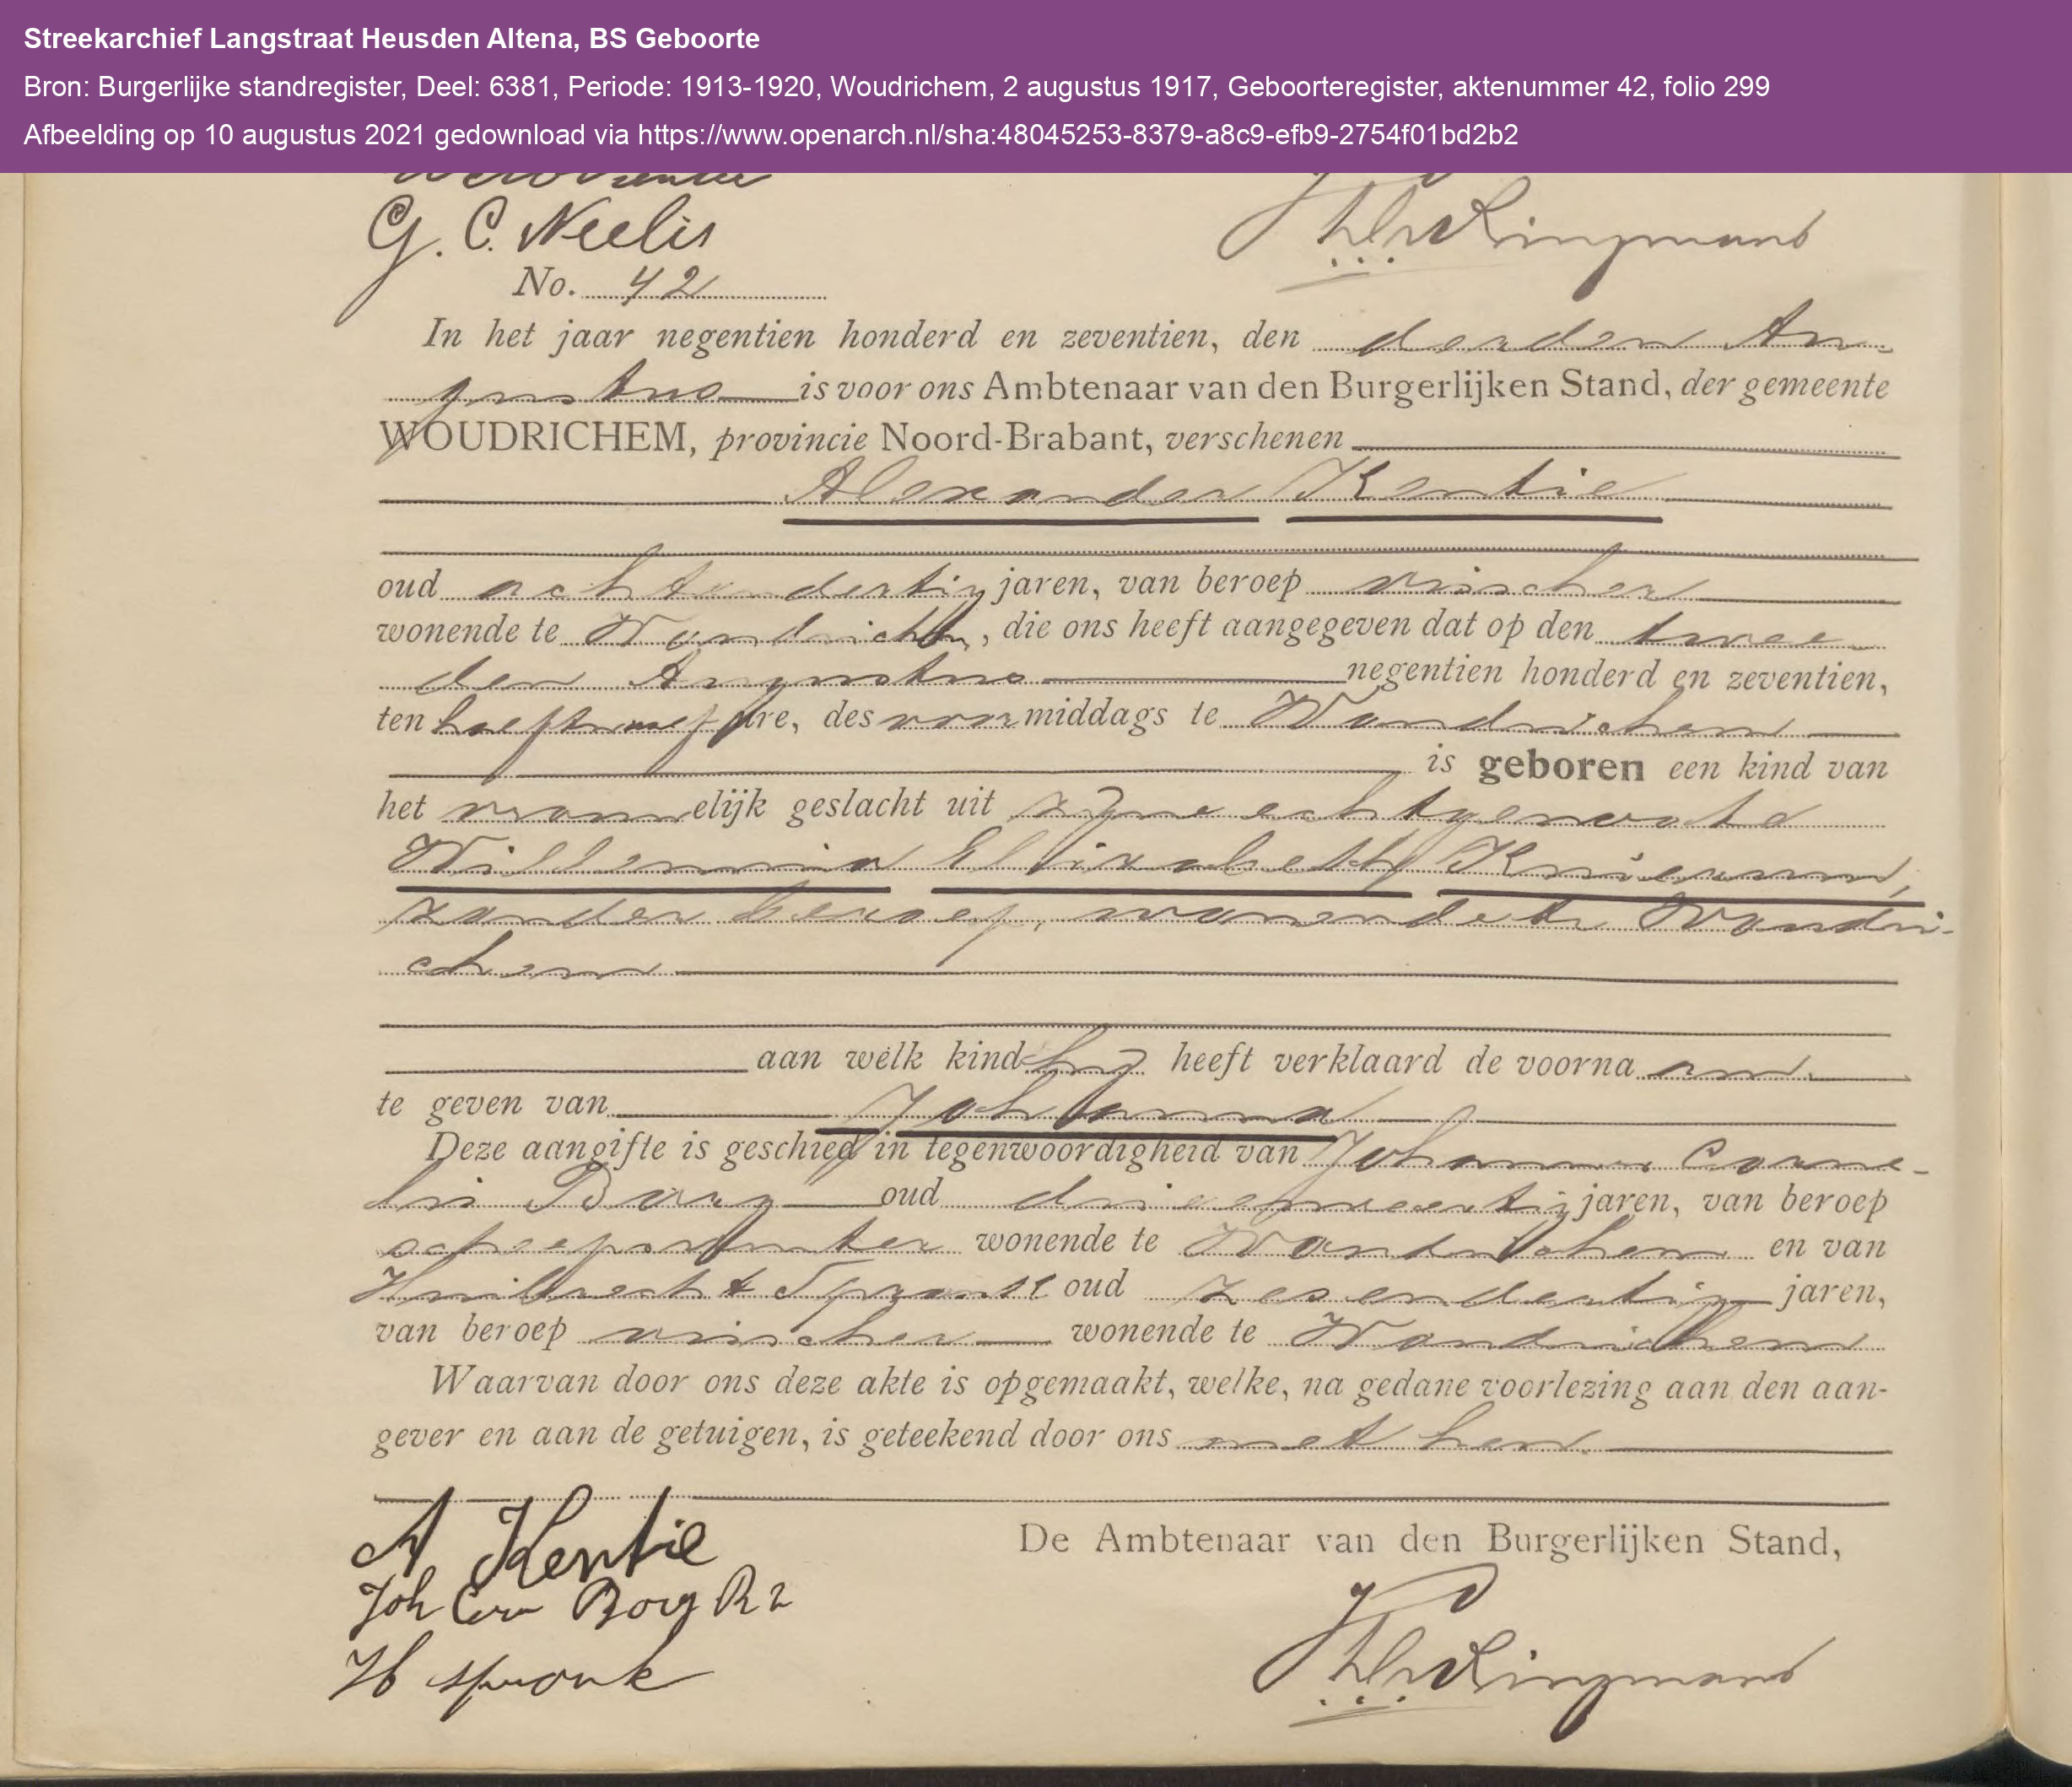 Streekarchief Langstraat Heusden Altena, BS Geboorte
Bron: Burgerlijke standregister, Deel: 6381, Periode: 1913-1920, Woudrichem, 2 augustus 1917, Geboorteregister, aktenummer 42, folio 299
Afbeelding op 10 augustus 2021 gedownload via https://www.openarch.nl/sha:48045253-8379-a8c9-efb9-2754f01bd2b2
G. C. Neelis
No. 42
In het jaar negentien honderd en zeventien, den derden Au-
gustus is voor ons Ambtenaar van den Burgerlijken Stand, der gemeente
WOUDRICHEM, provincie Noord-Brabant, verschenen
Alexander Kentie
oud achtendertig jaren, van beroep visscher
wonende te Woudrichem, die ons heeft aangegeven dat op den twee-
den Augustus negentien honderd en zeventien,
ten half twaalf ure, des voormiddags te Woudrichem
is geboren een kind van
het vrouwelijk geslacht uit zijne echtgenoote
Willemina Elizabeth
zonder beroep, wonende te Woudri-
chem
aan welk kind hij heeft verklaard de voornaam
te geven van Johanna
Deze aangifte is geschied in tegenwoordigheid van Johannes Corne-
lis Borg oud drieenveertig jaren, van beroep
wonende te Woudrichem en van
Huibrecht Spronk oud zesendertig jaren,
van beroep visscher wonende te Woudrichem
Waarvan door ons deze akte is opgemaakt, welke, na gedane voorlezing aan den aan-
gever en aan de getuigen, is geteekend door ons met hen.
A Kentie
De Ambtenaar van den Burgerlijken Stand,
Joh Corn Borg Rz
H spronk